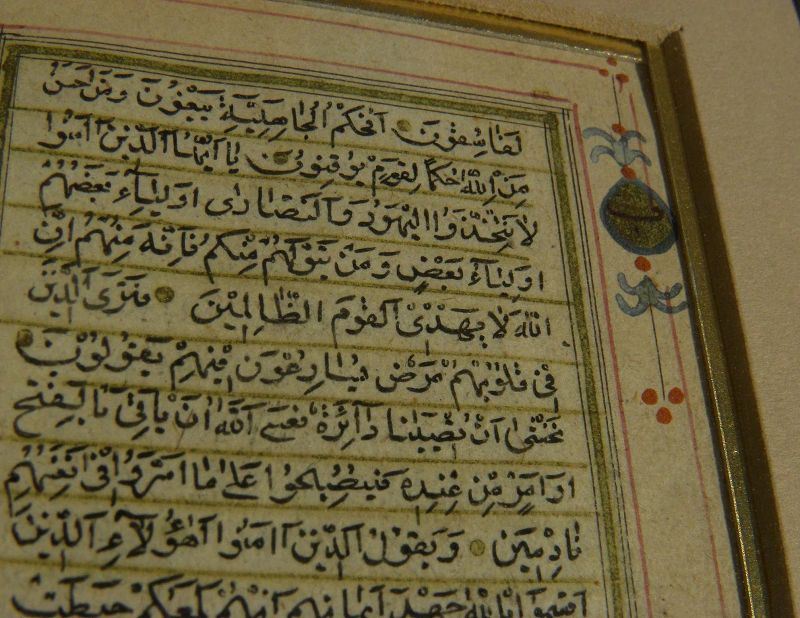 لَفَاسِقُونَ اَفَحُكْمُ الْجَاهِلِيَّةِ يَبْغُونَ وَمَنْ اَحْسَنُ
مِنَ اللّٰهِ حُكْمًا لِقَوْمٍ يُوقِنُونَ يَا اَيُّهَا الَّذِينَ اٰمَنُوا
لَا تَتَّخِذُوا الْيَهُودَ وَالنَّصَارٰى اَوْلِيَاۤءَ بَعْضُهُمْ
اَوْلِيَاۤءُ بَعْضٍ وَمَنْ يَتَوَلَّهُمْ مِنْكُمْ فَاِنَّهُ مِنْهُمْ اِنَّ
اللّٰهَ لَا يَهْدِى الْقَوْمَ الظَّالِمِينَ فَتَرَى الَّذِينَ
فِى قُلُوبِهِمْ مَرَضٌ يُسَارِعُونَ فِيهِمْ يَقُولُونَ
نَخْشٰى اَنْ تُصِيبَنَا دَاۤئِرَةٌ فَعَسَى اللّٰهُ اَنْ يَاْتِىَ بِالْفَتْحِ
اَوْ اَمْرٍ مِنْ عِنْدِهِ فَيُصْبِحُوا عَلٰى مَا اَسَرُّوا فِى اَنْفُسِهِمْ
نَادِمِينَ وَيَقُولُ الَّذِينَ اٰمَنُوا اَهٰؤُلَاۤءِ الَّذِينَ
اَقْسَمُوا بِاللّٰهِ جَهْدَ اَيْمَانِهِمْ اِنَّهُمْ لَمَعَكُمْ حَبِطَتْ